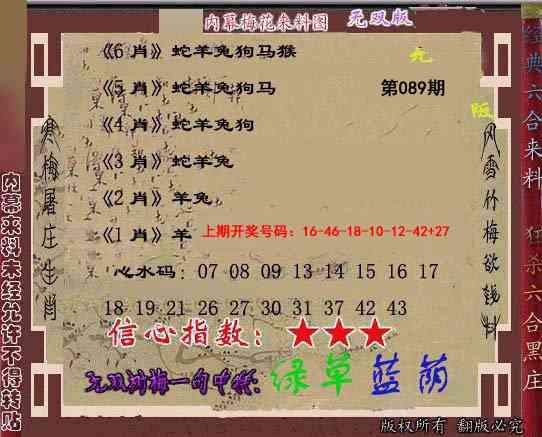 内幕梅花来料图 无双版
《6 肖》蛇羊兔狗马猴
《5 肖》蛇羊兔狗马 第089期
《4 肖》蛇羊兔狗
《3 肖》蛇羊兔
《2 肖》羊兔
《1 肖》羊 上期开奖号码：16-46-18-10-12-42+27
心水码：07 08 09 13 14 15 16 17
18 19 21 26 27 30 31 37 42 43
信心指数：★★★
无双刘梅一句中特：绿草蓝荫
版权所有 翻版必究
寒梅屠庄生肖
风雪竹梅欲钱料
内幕来料未经允许不得转贴
经典六合来料 狂杀六合黑庄